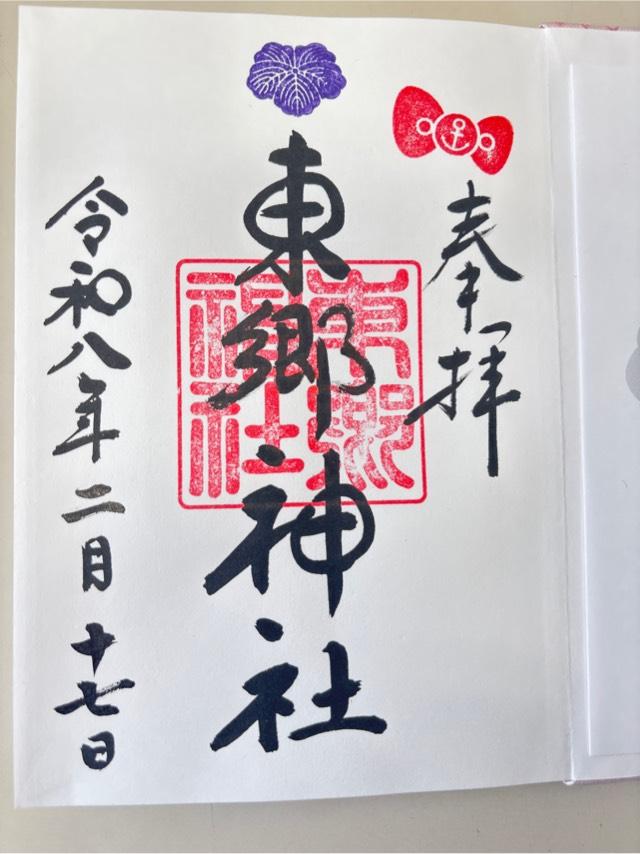 奉拝
東郷神社
東郷神社
令和八年二月十七日